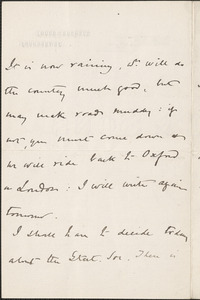 It is now raining, wh will do
the country much good, but
may make roads muddy: if
not, you must come down &
we will ride back to Oxford
or London: I will write again
tomorrow.
I shall have to decide today
about the Stat. Soc. There is